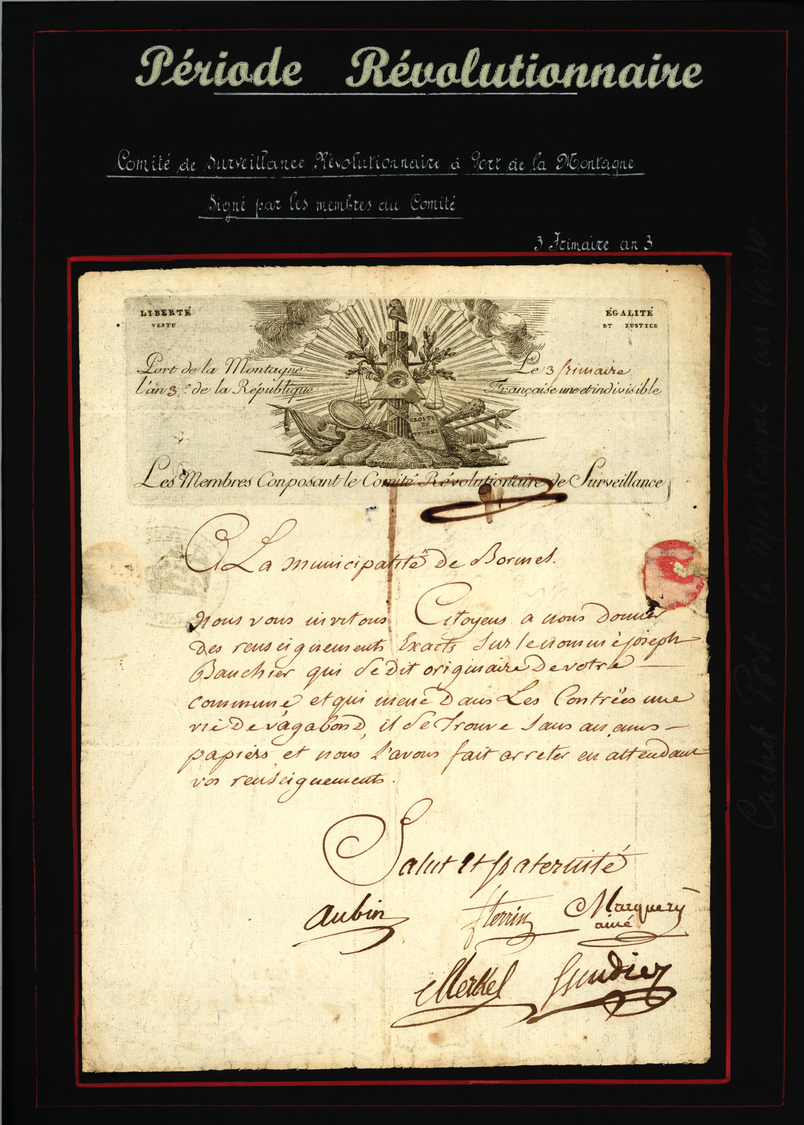 Période Révolutionnaire
Comité de Surveillance Révolutionnaire à Port de la Montagne
Signé par les membres du Comité
3 Frimaire an 3
LIBERTÉ
VERTU
ÉGALITÉ
ET JUSTICE
Port de la Montagne
Le 3 frimaire
l'an 3.e de la République
Française une et indivisible
Les Membres Conposant le Comité Révolutionaire de Surveillance
A La municipalité de Bormes.
Nous vous invitons Citoyens a nous donner
des renseignements Exacts Sur le nommé joseph
Bauchier qui Se dit originaire De votre
commune et qui mene Dans Les Contrées une
vie De vagabond, il Se Trouve Sans
papiers et nous l'avons fait arreter en attendant
vos renseignements.
Salut et fraternité
Aubin
Marquery
ainé
Merkel
Cachet Port la Montagne au verso